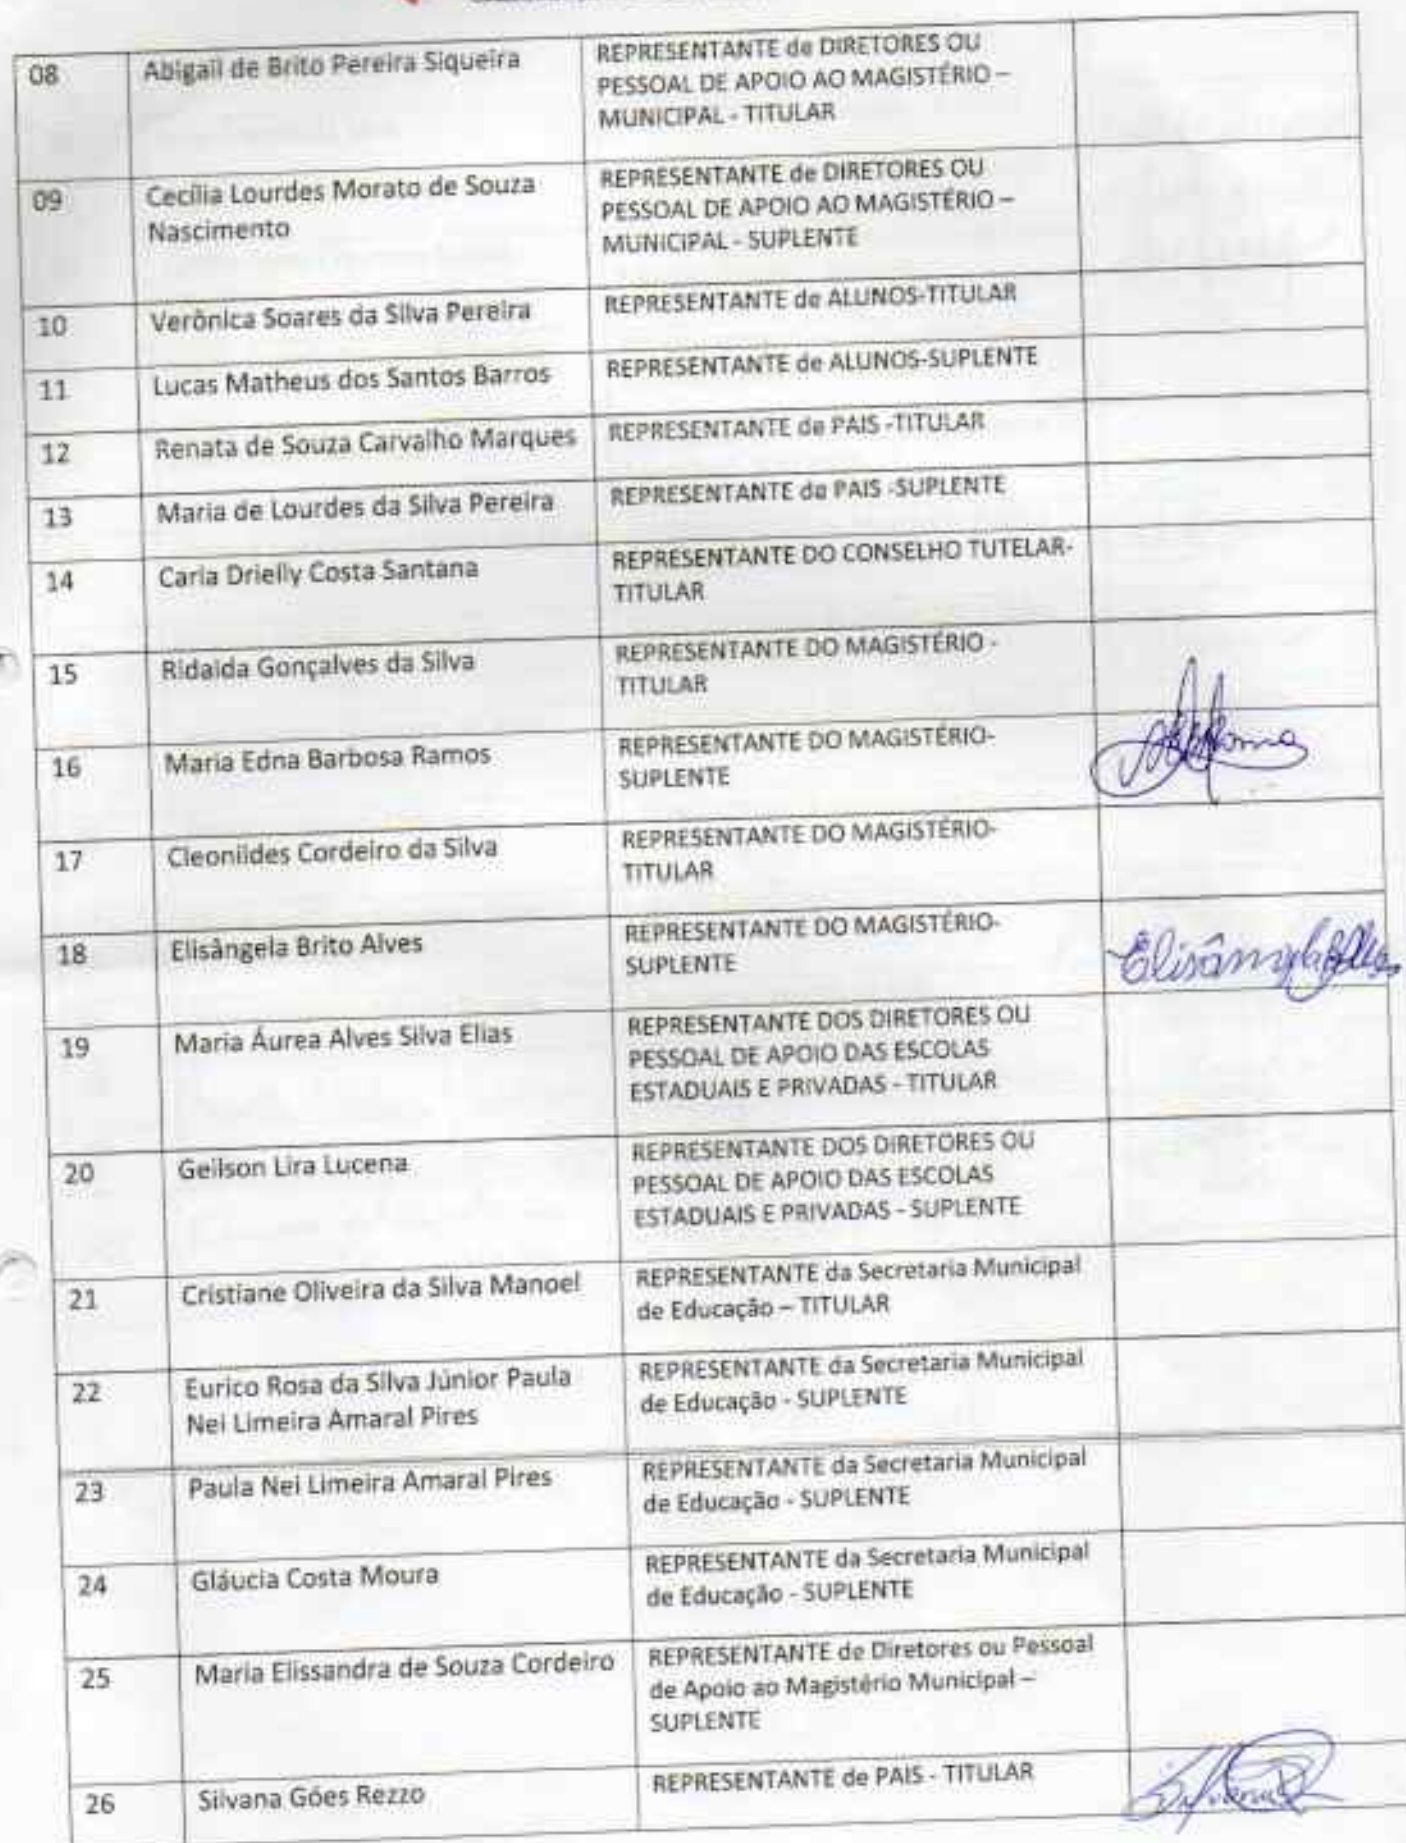 08 Abigail de Brito Pereira Siqueira REPRESENTANTE de DIRETORES OU
PESSOAL DE APOIO AO MAGISTÉRIO –
MUNICIPAL - TITULAR
09 Cecília Lourdes Morato de Souza REPRESENTANTE de DIRETORES OU
Nascimento PESSOAL DE APOIO AO MAGISTÉRIO –
MUNICIPAL - SUPLENTE
10 Verônica Soares da Silva Pereira REPRESENTANTE de ALUNOS-TITULAR
11 Lucas Matheus dos Santos Barros REPRESENTANTE de ALUNOS-SUPLENTE
12 Renata de Souza Carvalho Marques REPRESENTANTE de PAIS -TITULAR
13 Maria de Lourdes da Silva Pereira REPRESENTANTE de PAIS -SUPLENTE
14 Carla Drielly Costa Santana REPRESENTANTE DO CONSELHO TUTELAR-
TITULAR
15 Ridalda Gonçalves da Silva REPRESENTANTE DO MAGISTÉRIO -
TITULAR
16 Maria Edna Barbosa Ramos REPRESENTANTE DO MAGISTÉRIO-
SUPLENTE
17 Cleonildes Cordeiro da Silva REPRESENTANTE DO MAGISTÉRIO-
TITULAR
18 Elisângela Brito Alves REPRESENTANTE DO MAGISTÉRIO- Elisângela
SUPLENTE
19 Maria Áurea Alves Silva Elias REPRESENTANTE DOS DIRETORES OU
PESSOAL DE APOIO DAS ESCOLAS
ESTADUAIS E PRIVADAS - TITULAR
20 Geilson Lira Lucena REPRESENTANTE DOS DIRETORES OU
PESSOAL DE APOIO DAS ESCOLAS
ESTADUAIS E PRIVADAS - SUPLENTE
21 Cristiane Oliveira da Silva Manoel REPRESENTANTE da Secretaria Municipal
de Educação – TITULAR
22 Eurico Rosa da Silva Júnior Paula REPRESENTANTE da Secretaria Municipal
Nei Limeira Amaral Pires de Educação - SUPLENTE
23 Paula Nei Limeira Amaral Pires REPRESENTANTE da Secretaria Municipal
de Educação - SUPLENTE
24 Gláucia Costa Moura REPRESENTANTE da Secretaria Municipal
de Educação - SUPLENTE
25 Maria Elissandra de Souza Cordeiro REPRESENTANTE de Diretores ou Pessoal
de Apoio ao Magistério Municipal –
SUPLENTE
26 Silvana Góes Rezzo REPRESENTANTE de PAIS - TITULAR